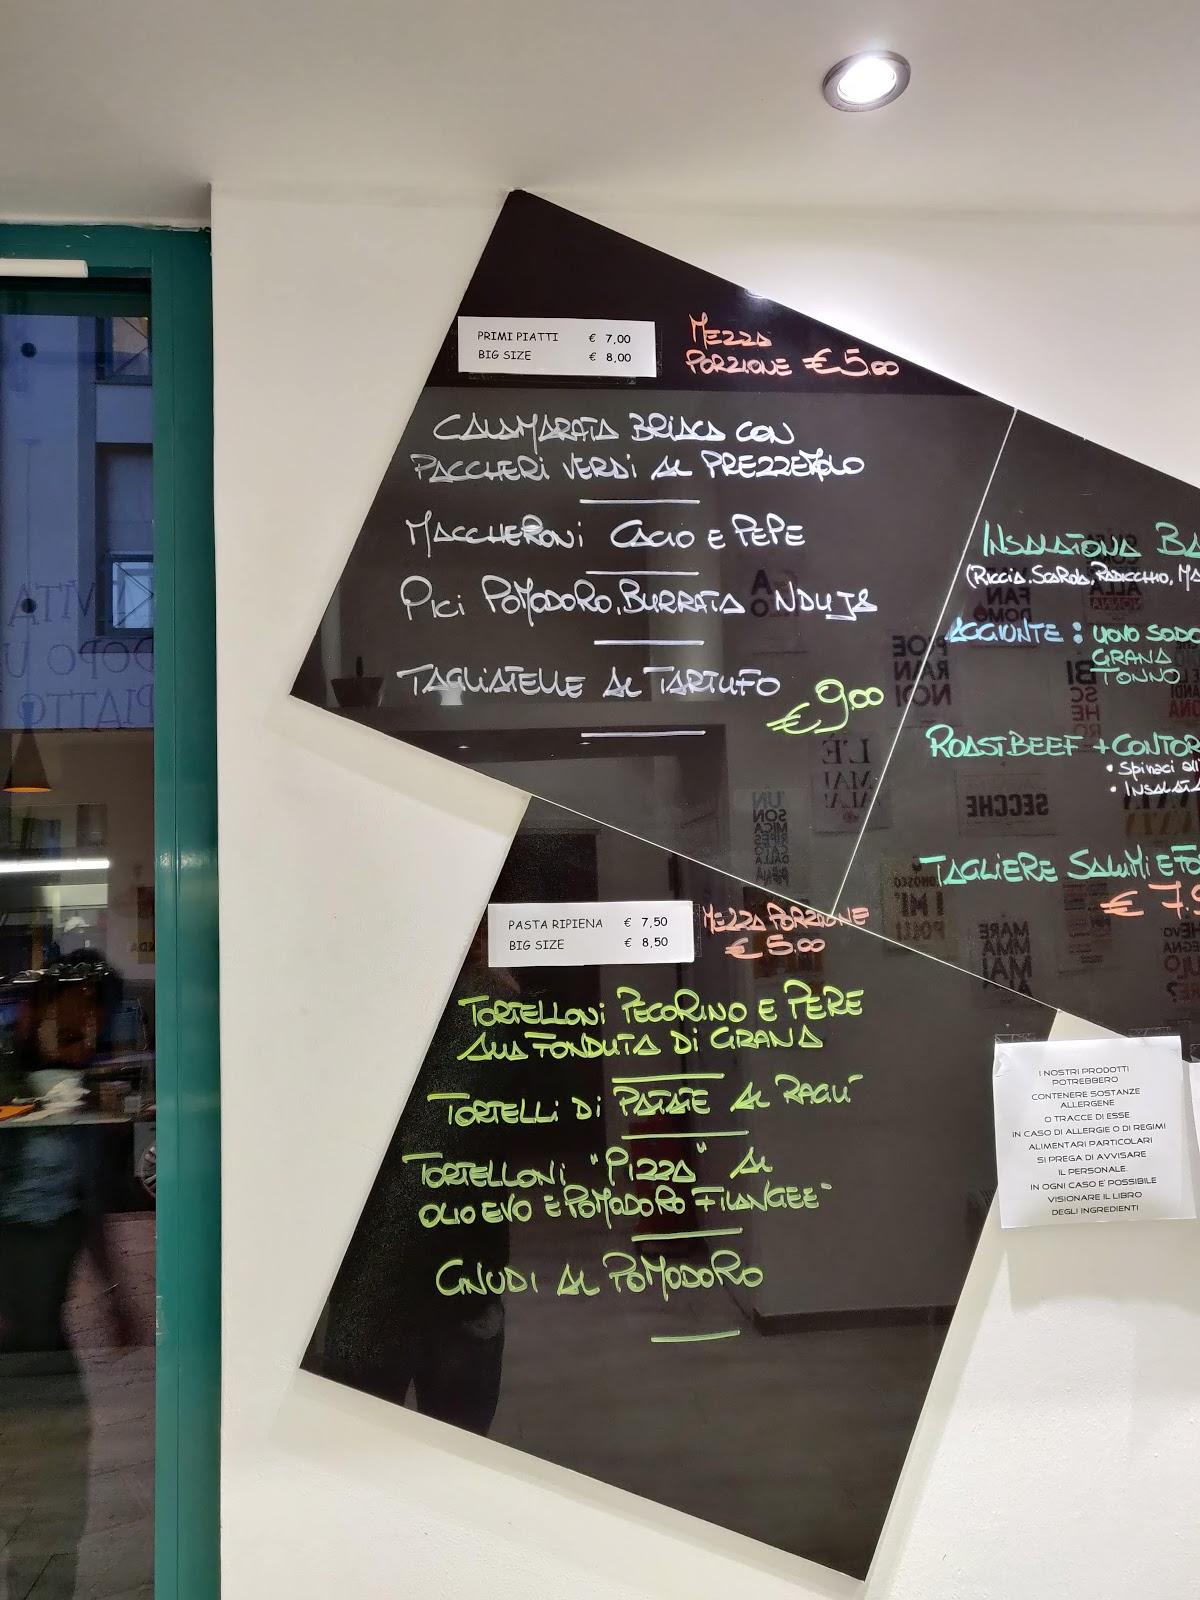 PRIMI PIATTI € 7,00
BIG SIZE € 8,00
MEZZA
PORZIONE €5.00
CALAMARATA BRIACA CON
PACCHERI VERDI AL PREZZEMOLO
MACCHERONI CACIO E PEPE
PICI POMODORO, BURRATA NDUJA
TAGLIATELLE AL TARTUFO
€9.00
PASTA RIPIENA € 7,50
BIG SIZE € 8,50
MEZZA PORZIONE
€ 5.00
TORTELLONI PECORINO E PERE
ALLA FONDUTA DI GRANA
TORTELLI DI PATATE AL RAGÚ
TORTELLONI "PIZZA" AL
OLIO EVO E POMODORO FILANGEE
GNUDI AL POMODORO
INSALATONA BA
(RICCIA, SCAROLA, RADICCHIO, MA
AGGIUNTE: UOVO SODO
GRANA
TONNO
ROASTBEEF + CONTOR
• Spinaci all'
• INSALATA
TAGLIERE SALUMI E FO
€ 7.
I NOSTRI PRODOTTI
POTREBBERO
CONTENERE SOSTANZE
ALLERGENE
O TRACCE DI ESSE
IN CASO DI ALLERGIE O DI REGIMI
ALIMENTARI PARTICOLARI
SI PREGA DI AVVISARE
IL PERSONALE.
IN OGNI CASO E' POSSIBILE
VISIONARE IL LIBRO
DEGLI INGREDIENTI